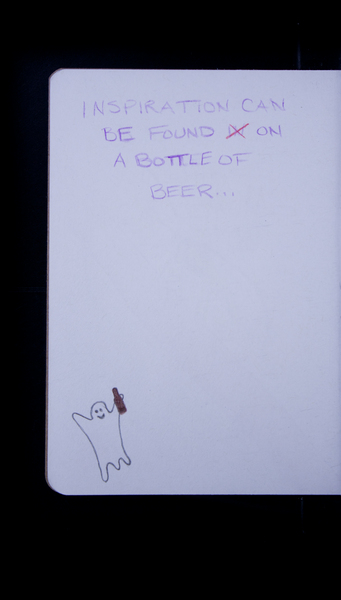 INSPIRATION CAN
BE FOUND IN ON
A BOTTLE OF
BEER...